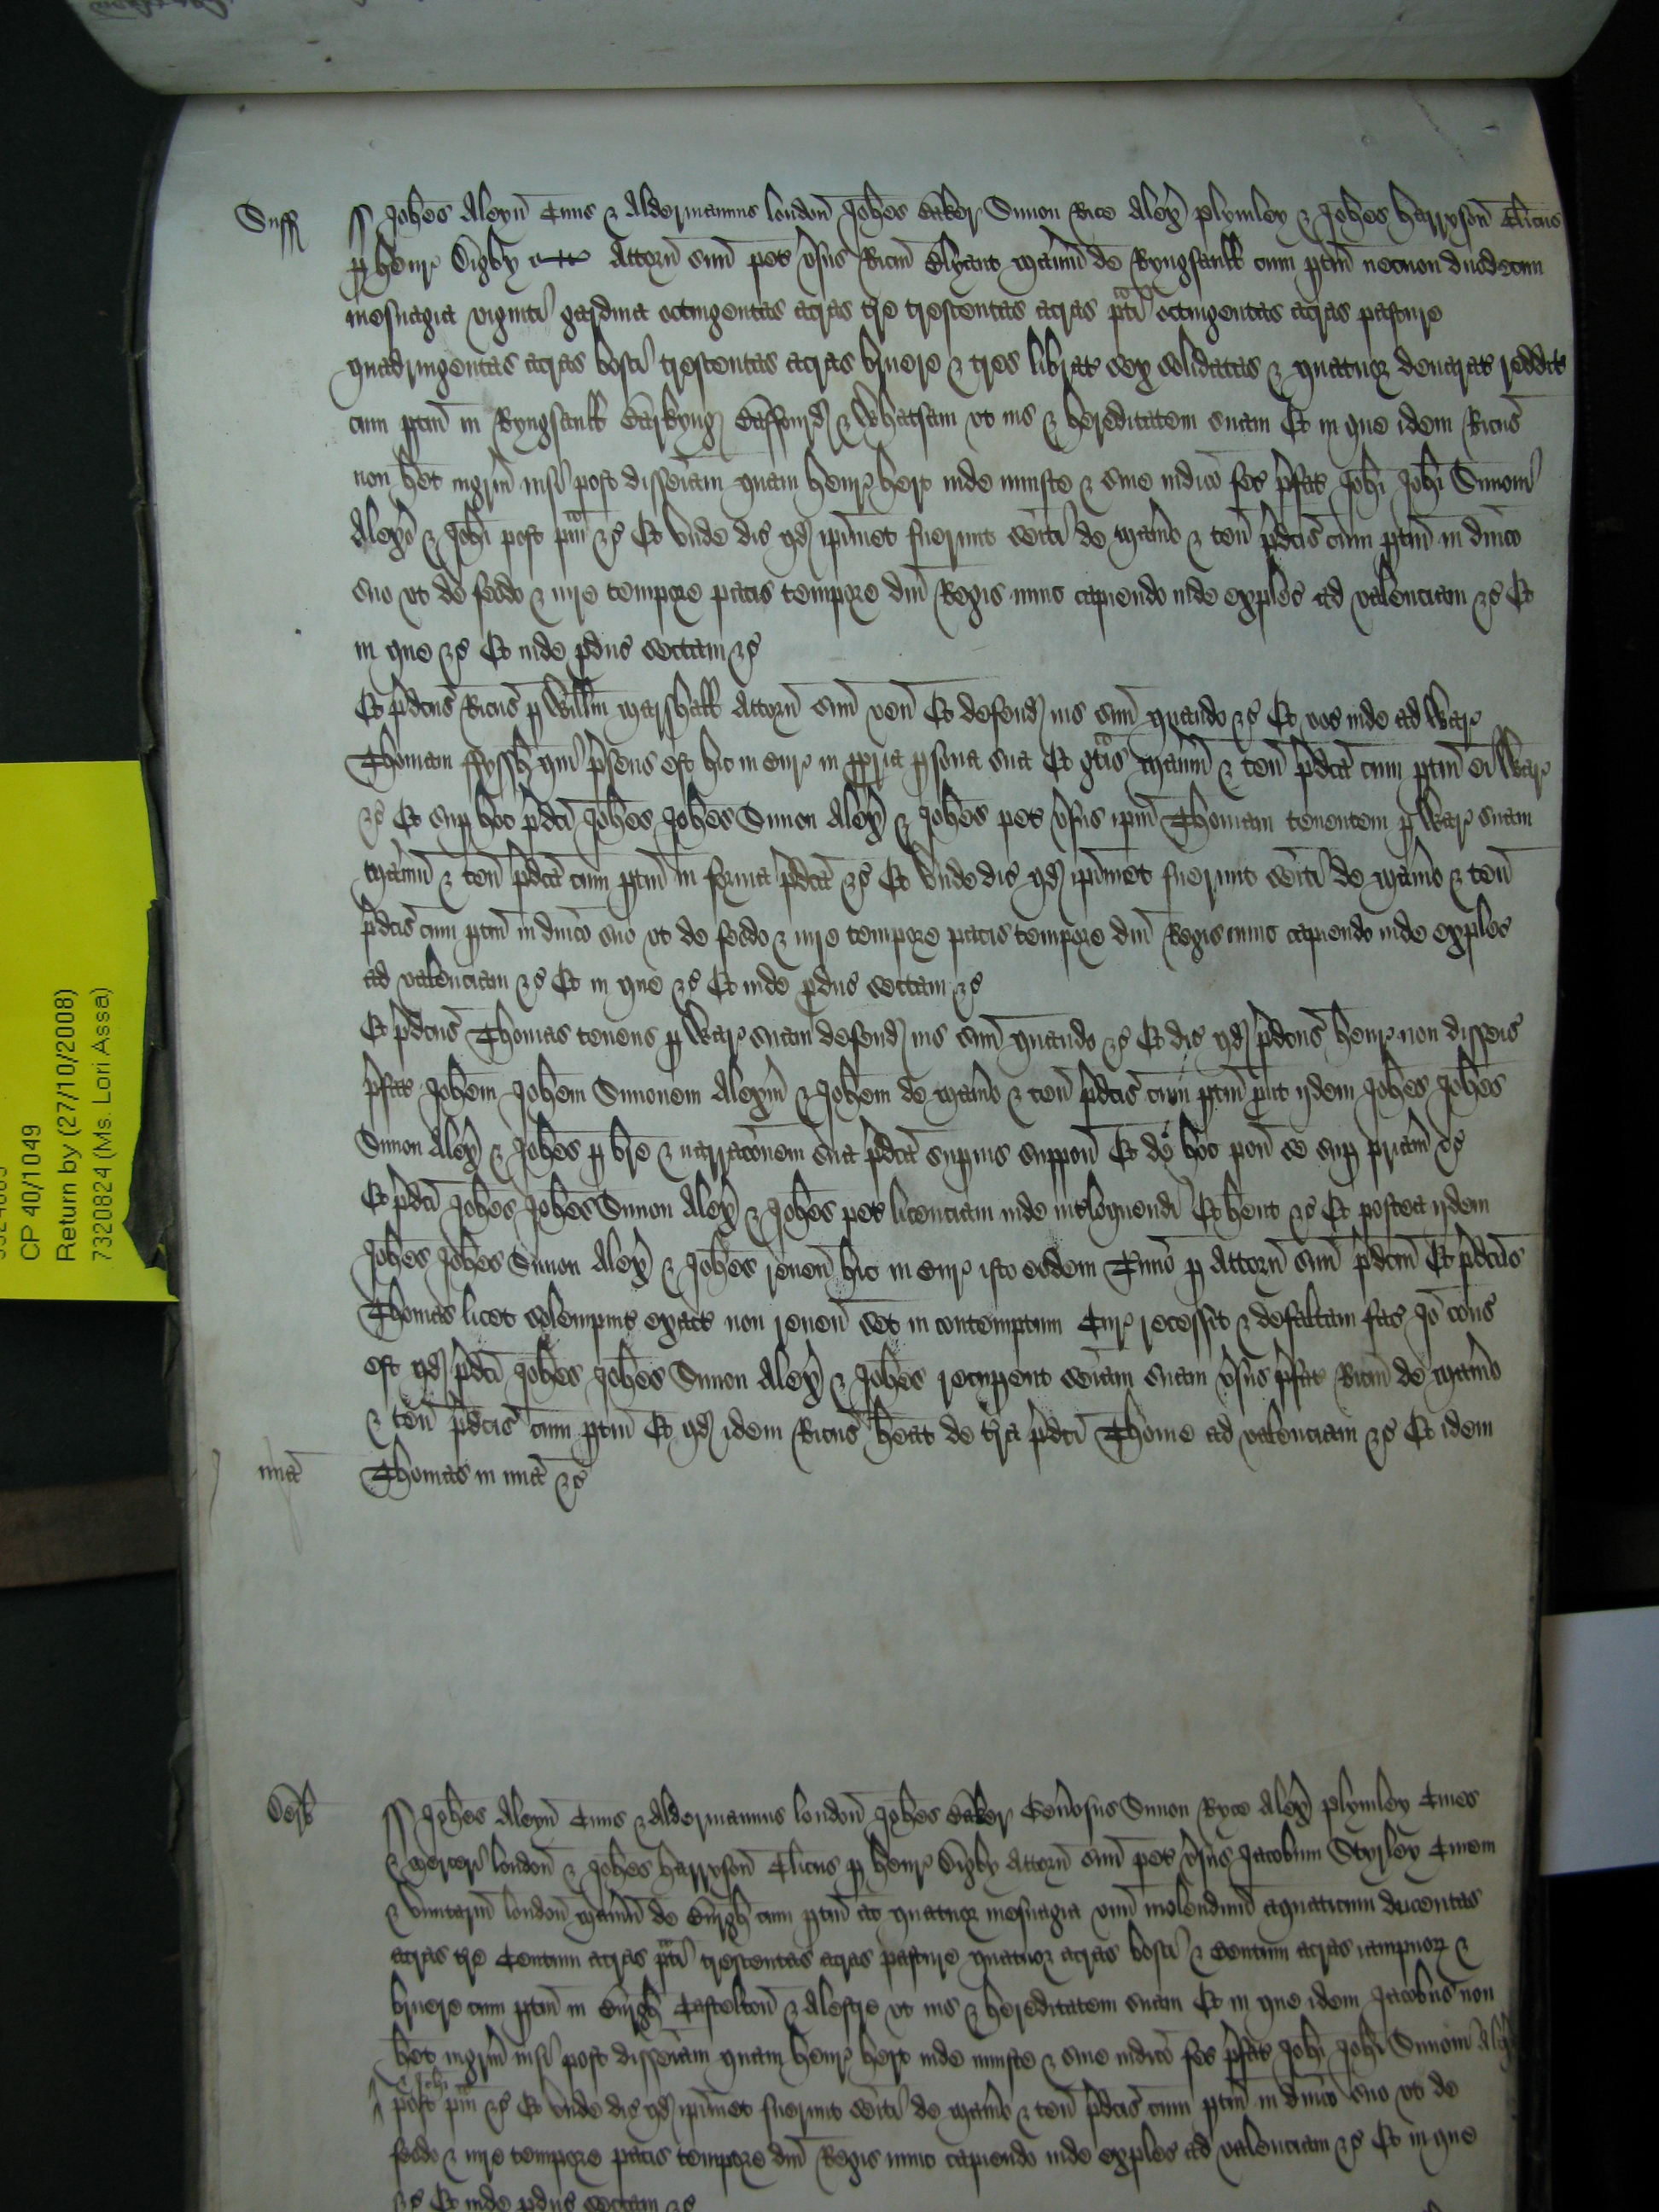 Suff
ss Joh̄es Aleyn̄ Civis & Aldermannus london̄ Joh̄es Baker Simon Rice Alex̄ plymley & Joh̄es harryson̄ Cl̄icus
p henr Digby Attorn̄ suu̅ pet v̄sus Ric̄m Elyant man̄iu̅ de Ryngsall cum ptin̄ necnon duodecim
mesuagia viginti gardina octingentas acras t̄re trescentas acras p̄ati octingentas acras pasture
quadringentas acras bosci trescentas acras bruere & tres librat sex solidatas & quatuor denarat reddit
cum ptin̄ in Ryngsall Barkyng & Whatsam ut ius & hereditatem suam Et in que idem Ric̄us
non h̄et ingr̄m nisi post disseīam quam henr hert inde iniuste & sine iudico fec p̄fat Joh̄i Joh̄i Simoni
Alex̄o & Joh̄i post p̄m̄ &c Et unde dic qd ip̄imet fuerunt sei̅ti de man̄io & ten̄ p̄dc̄is cum ptin̄ in dn̄ico
suo ut de feodo & iure tempore pacis tempore dn̄i Regis nunc capiendo inde exples ad valenciam &c Et
in que &c Et inde pduc sectam &c
Et p̄dc̄us Ric̄us p Will̄m Marshall Attorn̄ suu̅ ven̄ Et defend ius suu̅ quando &c Et voc inde ad War
Thomam ffyssh qui p̄sens est hic in Cur in ppria psona sua Et gratis man̄iu̅ & ten̄ p̄dc̄a cum ptin̄ ei War
&c Et sup hoc p̄dc̄i Joh̄es Joh̄es Simon Alex̄ & Joh̄es pet v̄sus ip̄m Thomam tenentem p War suam
man̄iu̅ & ten̄ p̄dc̄a cum ptin̄ in forma p̄dc̄a &c Et unde dic qd ip̄imet fuerunt sei̅ti de man̄io & ten̄
p̄dc̄is cum ptin̄ in dn̄ico suo ut de feodo & iure tempore pacis tempore dn̄i Regis nunc capiendo inde exples
ad valenciam &c Et in que &c Et inde pduc sectam &c
Et p̄dc̄us Thomas tenens p War suam defend ius suu̅ quando &c Et dic qd p̄dc̄us henr non disseis
p̄fat Joh̄em Joh̄em Simonem Alex̄m & Joh̄em de man̄io & ten̄ p̄dc̄is cum ptin̄ put ijdem Joh̄es Joh̄es
Simon Alex̄ & Joh̄es p br̄e & narrac̄onem sua p̄dc̄a superius suppon̄ Et de hoc pon̄ se sup pr̄iam &c
Et p̄dc̄i Joh̄es Joh̄es Simon Alex̄ & Joh̄es pet licenciam inde int̄loquendi Et h̄ent &c Et postea ijdem
Joh̄es Joh̄es Simon Alex̄ & Joh̄es reven̄ hic in Cur isto eodem T̄mino p Attorn̄ suu̅ p̄dc̄m Et p̄dc̄us
Thomas licet solempnit exact non reven̄ set in contemptum Cur recessit & defaltam fac Jo̅ cons
est qd p̄dc̄i Joh̄es Joh̄es Simon Alex̄ & Joh̄es recuperent sei̅am suam v̄sus p̄fat Ric̄m de man̄io
& ten̄ p̄dc̄is cum ptin̄ Et qd idem Ric̄us h̄eat de t̄ra p̄dc̄i Thome ad valenciam &c Et idem
mi̅a Thomas in mi̅a &c
Derb
ss Joh̄es Aleyn̄ Civis & Aldermannus london̄ Joh̄es Baker Gen̄osus Simon Ryce Alex̄ plymley Cives
& Merceri london̄ & Joh̄es harryson̄ Cl̄icus p henr Digby Attorn̄ suu̅ pet v̄sus Jacobum Styrley Civem
& london̄ man̄iu̅ de Burgh cum ptin̄ ac quatuor mesuagia unu̅ molendinu̅ aquaticum ducentas
acras t̄re Centum acras p̄ati trescentas acras pasture quatuor acras bosci & Centum acras iampnor &
bruere cum ptin̄ in Burgh Castelton̄ & Alestre ut ius & hereditatem suam Et in que idem Jacobus non
h̄et ingr̄m nisi post disseīam quam henr hert inde iniuste & sine iudico fec p̄fat Joh̄i Joh̄i Simoni Alex̄
& Joh̄i
post p̄m̄ &c Et unde dic qd ip̄imet fuerunt sei̅ti de man̄io & ten̄ p̄dc̄is cum ptin̄ in dn̄ico suo ut de
feodo & iure tempore pacis tempore dn̄i Regis nunc capiendo inde exples ad valenciam &c Et in que
&c Et inde pduc sectam &c
CP 40/1049
Return by (27/10/2008)
7320824 (Ms. Lori Assa)